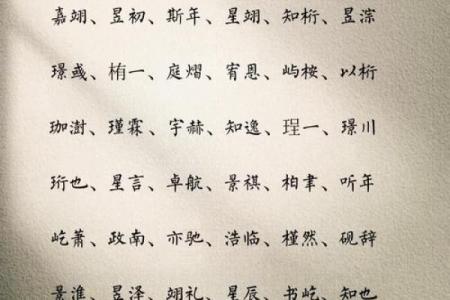 嘉翊、昱初、斯年、星翊、知桁、昱淙
璟彧、栯一、庭熠、宥恩、屿桉、以桁
珈澍、瑾霖、宇赫、知逸、珵一、璟川
珩也、星言、卓航、景祺、柏聿、听年
屹萧、政南、亦驰、浩临、槿然、砚辞
景淮、昱泽、翊礼、星辰、书屹、知也